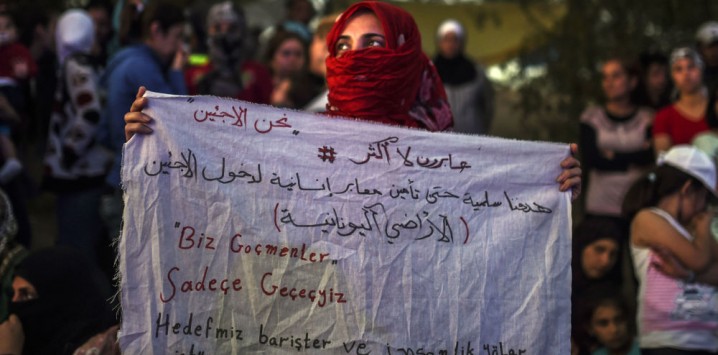 "نحن الاجئين"
# عابرون لا أكثر
هدفنا سلمية حتى تأمين معابر إنسانية لدخول الاجئين
(الأراضي اليونانية)
"Biz Goçmenler"
Sadeçe Geçeçyiz
Hedefmiz barişter ve insanlik